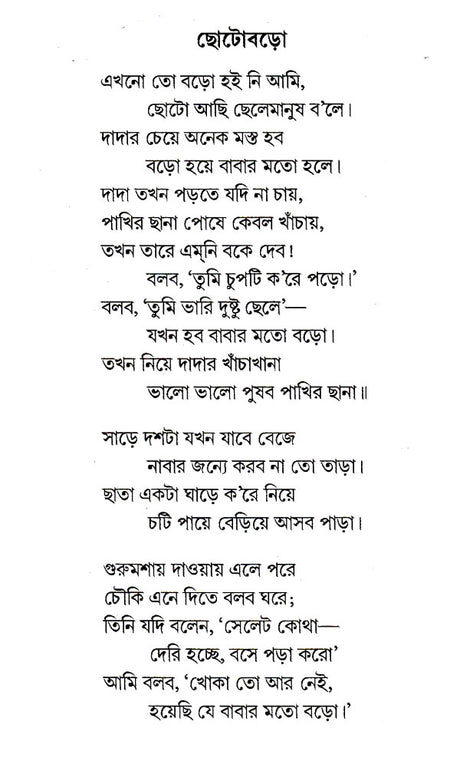 ছোটোবড়ো
এখনো তো বড়ো হই নি আমি,
ছোটো আছি ছেলেমানুষ ব'লে।
দাদার চেয়ে অনেক মস্ত হব
বড়ো হয়ে বাবার মতো হলে।
দাদা তখন পড়তে যদি না চায়,
পাখির ছানা পোষে কেবল খাঁচায়,
তখন তারে এম্‌নি বকে দেব!
বলব, 'তুমি চুপটি ক'রে পড়ো।'
বলব, 'তুমি ভারি দুষ্টু ছেলে'—
যখন হব বাবার মতো বড়ো।
তখন নিয়ে দাদার খাঁচাখানা
ভালো ভালো পুষব পাখির ছানা॥
সাড়ে দশটা যখন যাবে বেজে
নাবার জন্যে করব না তো তাড়া।
ছাতা একটা ঘাড়ে ক'রে নিয়ে
চটি পায়ে বেড়িয়ে আসব পাড়া।
গুরুমশায় দাওয়ায় এলে পরে
চৌকি এনে দিতে বলব ঘরে;
তিনি যদি বলেন, 'সেলেট কোথা—
দেরি হচ্ছে, বসে পড়া করো'
আমি বলব, 'খোকা তো আর নেই,
হয়েছি যে বাবার মতো বড়ো।'